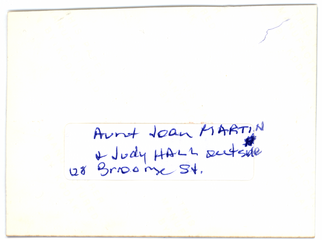 Aunt Joan MARTIN
& Judy HALL outside
128 Broome St.